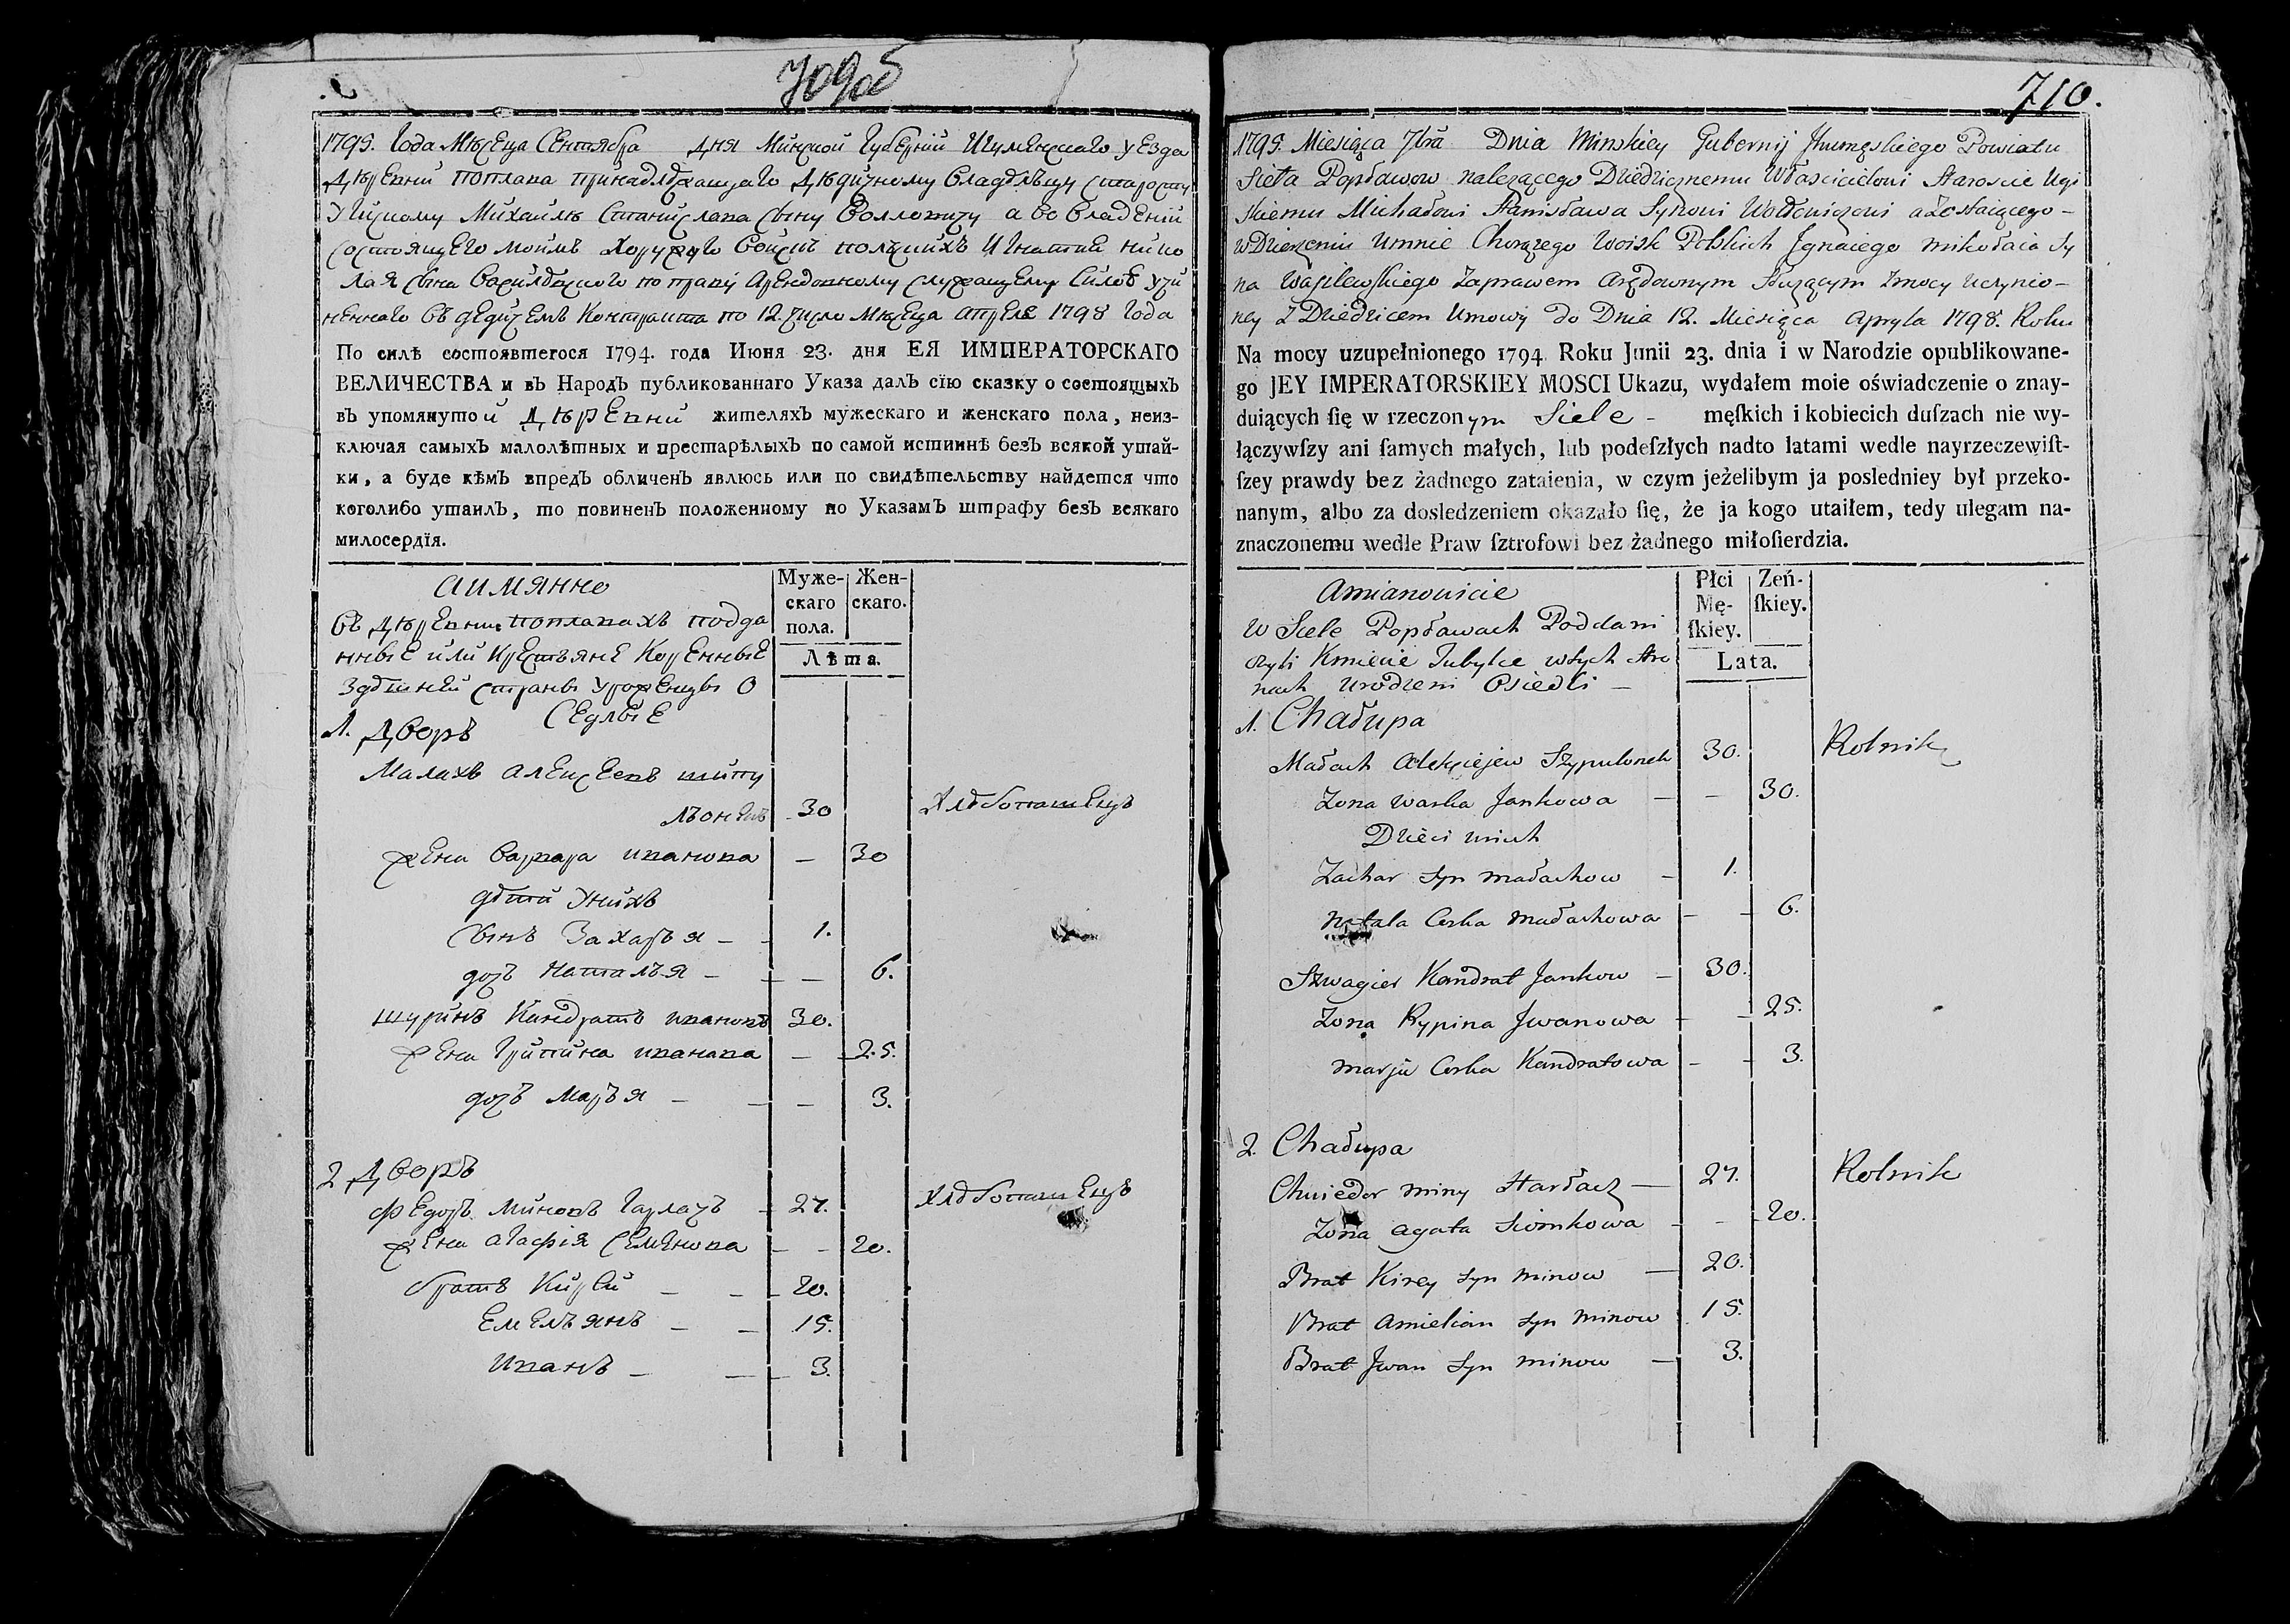 709об
1795. Года Мѣсеца Сентября дня Минской Губерній Игуменскаго уезда
Дѣревни Поплава принадлѣжащаго Дѣдичному Владѣльцу Старосту
Угискому Михайлѣ Станислава сыну Волловичу а во владеній
состоящего моимъ Хоружаго Войскъ полскихъ Игнатій Нико
лая сына Василѣвского по праву Арендовному служащему силоѣ учи
неннаго съ дедичемъ Контракта по 12. число Мѣсеца Апреле 1798 Года
По силѣ состоявшегося 1794. года Июня 23. дня ЕЯ ИМПЕРАТОРСКАГО
ВЕЛИЧЕСТВА и въ Народъ публикованнаго Указа далъ сїю сказку о состоящыхъ
въ упомянутой Дѣревни жителяхъ мужескаго и женскаго пола, неиз-
ключая самыхъ малолѣтных и престарѣлыхъ по самой истиннѣ безъ всякой утай-
ки, а буде кѣмъ впредъ обличенъ явлюсь или по свидѣтельству найдется что
коголибо утаилъ, то повиненъ положенному по Указамъ штрафу безъ всякаго
милосердїя.
аимянно
Муже-
скаго
пола.
Жен-
скаго.
Лѣта.
Въ Дѣревни Поплавахъ подда
нныЕ или КрестьянЕ КоренныЕ
Здѣшней страны Уроженцы О
СЕдлыЕ
1. Дворъ
Малахъ Алексеевъ шипу
льонекъ 30 Хлѣбопашецъ
жена Варвара иванова — 30
дѣти Унихъ
сынъ Захарья — — 1.
дочъ Наталья — — — 6.
шуринъ Кандратъ ивановъ 30.
жена Грипина иванава — 25.
дочъ Марья — — — 3.
2 Дворъ
Федоръ Миновъ Гарлачъ - 27. Хлѣбопашецъ
жена Агафія Семенова — - 20.
братъ Кирей — — 20.
Емельянъ — — 15.
Иванъ — — 3.
710.
1795. Miesiąca 7bra Dnia Minskiey Gubernij Jhumęskiego Powiatu
Sieła Popławow należącego Dziedzicznemu Włascicielowi Staroscie Ugi
skiemu Michałowi Stanisława Synowi Wołłowiczowi a Zostaiącego -
w Dzierzeniu umnie Chorążego Woisk Polskich Jgnacego Mikołaia Sy
na Wasilewskiego Zaprawem Arędownym Służącym Zmocy uczynio-
ney Z Dziedzicem Umowy do Dnia 12. Miesiąca Apryla 1798. Roku
Na mocy uzupełnionego 1794 Roku Junii 23. dnia i w Narodzie opublikowane-
go JEY IMPERATORSKIEY MOSCI Ukazu, wydałem moie oświadczenie o znay-
duiących ſię w rzeczonym Siele - męſkich i kobiecich duſzach nie wy-
łączywſzy ani ſamych małych, lub podeſzłych nadto latami wedle nayrzeczewiſt-
ſzey prawdy bez żadnego zataienia, w czym jeżelibym ja posledniey był przeko-
nanym, albo za dosledzeniem okazało ſię, że ja kogo utaiłem, tedy ulegam na-
znaczonemu wedle Praw ſztrofowi bez żadnego miłoſierdzia.
Amianowicie
Płci
Mę-
ſkiey.
Zeń-
ſkiey.
Lata.
W Siele Popławach Poddani
czyli Kmiecie Tubylce wtych stro
nach urodzeni Osiedli —
1. Chałupa
Małach Aleksiejew Szypulonek 30. Rolnik
Zona Warka Jankowa — — 30.
Dzieci unich
Zachar syn Małachow — 1.
Natala Corka Małachowa — — 6.
Szwagier Kandrat Jankow — 30.
Zona Rypina Jwanowa — — 25.
Marja Corka Kandratowa — — 3.
2. Chałupa
Chwiedor Miny Harłacz — 27. Rolnik
Zona Agata Siomkowa - - 20.
Brat Kirey syn Minow — 20.
Brat Amielian syn Minow 15.
Brat Jwan syn Minow — 3.